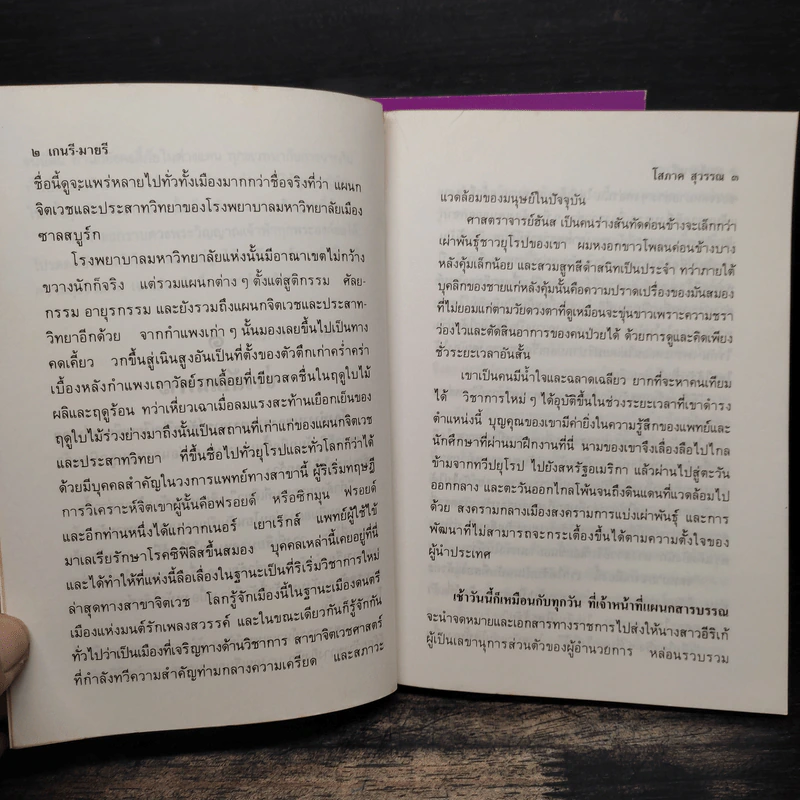 ๒ เกนรี-มายรี
ชื่อนี้ดูจะแพร่หลายไปทั่วทั้งเมืองมากกว่าชื่อจริงที่ว่า แผนก
จิตเวชและประสาทวิทยาของโรงพยาบาลมหาวิทยาลัยเมือง
ซาลสบูร์ก
โรงพยาบาลมหาวิทยาลัยแห่งนั้นมีอาณาเขตไม่กว้าง
ขวางนักก็จริง แต่รวมแผนกต่าง ๆ ตั้งแต่สูติกรรม ศัลย-
กรรม อายุรกรรม และยังรวมถึงแผนกจิตเวชและประสาท-
วิทยาอีกด้วย จากกำแพงเก่า ๆ นั้นมองเลยขึ้นไปเป็นทาง
คดเคี้ยว วกขึ้นสู่เนินสูงอันเป็นที่ตั้งของตัวตึกเก่าคร่ำคร่า
เบื้องหลังกำแพงเถาวัลย์รกเลื้อยที่เขียวสดชื่นในฤดูใบไม้
ผลิและฤดูร้อน ทว่าเหี่ยวเฉาเมื่อลมแรงสะท้านเยือกเย็นของ
ฤดูใบไม้ร่วงย่างมาถึงนั้นเป็นสถานที่เก่าแก่ของแผนกจิตเวช
และประสาทวิทยา ที่ขึ้นชื่อไปทั่วยุโรปและทั่วโลกก็ว่าได้
ด้วยมีบุคคลสำคัญในวงการแพทย์ทางสาขานี้ ผู้ริเริ่มทฤษฎี
การวิเคราะห์จิตเขาผู้นั้นคือฟรอยด์ หรือซิกมุน ฟรอยด์
และอีกท่านหนึ่งได้แก่วากเนอร์ เยาเร็กส์ แพทย์ผู้ใช้ไข้
มาเลเรียรักษาโรคซิฟิลิสขึ้นสมอง บุคคลเหล่านี้เคยอยู่ที่นี่
และได้ทำให้ที่แห่งนี้ลือเลื่องในฐานะเป็นที่ริเริ่มวิชาการใหม่
ล่าสุดทางสาขาจิตเวช โลกรู้จักเมืองนี้ในฐานะเมืองดนตรี
เมืองแห่งมนต์รักเพลงสวรรค์ และในขณะเดียวกันก็รู้จักกัน
ทั่วไปว่าเป็นเมืองที่เจริญทางด้านวิชาการ สาขาจิตเวชศาสตร์
ที่กำลังทวีความสำคัญท่ามกลางความเครียด และสภาวะ
โสภาค สุวรรณ ๓
แวดล้อมของมนุษย์ในปัจจุบัน
ศาสตราจารย์ฮันส เป็นคนร่างสันทัดค่อนข้างจะเล็กกว่า
เผ่าพันธุ์ชาวยุโรปของเขา ผมหงอกขาวโพลนค่อนข้างบาง
หลังคุ้มเล็กน้อย และสวมสูทสีดำสนิทเป็นประจำ ทว่าภายใต้
บุคลิกของชายแก่หลังคุ้มนั้นคือความปราดเปรื่องของมันสมอง
ที่ไม่ยอมแก่ตามวัยดวงตาที่ดูเหมือนจะขุ่นขาวเพราะความชรา
ว่องไวและตัดสินอาการของคนป่วยได้ ด้วยการดูและคิดเพียง
ชั่วระยะเวลาอันสั้น
เขาเป็นคนมีน้ำใจและฉลาดเฉลียว ยากที่จะหาคนเทียม
ได้ วิชาการใหม่ ๆ ได้อุบัติขึ้นในช่วงระยะเวลาที่เขาดำรง
ตำแหน่งนี้ บุญคุณของเขามีค่ายิ่งในความรู้สึกของแพทย์และ
นักศึกษาที่ผ่านมาฝึกงานที่นี่ นามของเขาจึงเลื่องลือไปไกล
ข้ามจากทวีปยุโรป ไปยังสหรัฐอเมริกา แล้วผ่านไปสู่ตะวัน
ออกกลาง และตะวันออกไกลโพ้นจนถึงดินแดนที่แวดล้อมไป
ด้วย สงครามกลางเมืองสงครามการแบ่งเผ่าพันธุ์ และการ
พัฒนาที่ไม่สามารถจะกระเตื้องขึ้นได้ตามความตั้งใจของ
ผู้นำประเทศ
เช้าวันนี้ก็เหมือนกับทุกวัน ที่เจ้าหน้าที่แผนกสารบรรณ
จะนำจดหมายและเอกสารทางราชการไปส่งให้นางสาวอีริเก้
ผู้เป็นเลขานุการส่วนตัวของผู้อำนวยการ หล่อนรวบรวม